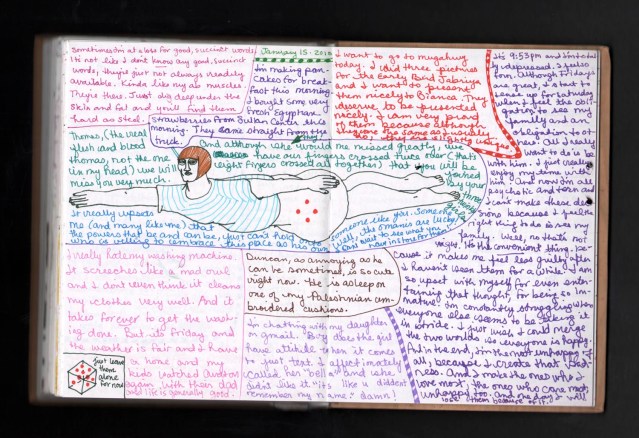 Sometimes I'm at a loss for good, succinct words.
It's not like I don't know any good, succinct
words, they're just not always readily
available. Kinda like my ab muscles.
They're there. Just dig deep under the
skin and fat and you'll find them
hard as steel.
Thomas, (the real
flesh and blood
thomas, not the one
in my head) we will
miss you very much.
January 15. 2010
I'm making pan-
cakes for break-
fast this morning.
I bought some very
fresh Egyptian
strawberries from Sultan Center this
morning. They came straight from the
truck.
And although we would be missed greatly, we
have our fingers crossed twice over (that's
eight fingers crossed all together) that you will be
joined
by your
It really upsets
me (and many like me) that
the powers that be and can be, just can't hold onto
someone like you. Someone
who is willing to embrace this place as his own.
I really hate my washing machine.
It screeches like a mad owl
and I don't even think it cleans
my clothes very well. And it
takes forever to get the wash-
ing done. But it's Friday and
the weather is fair and I have
a home and my
kids watched
again with their dad
and life is generally good.
just leave
them
alone
for now
Duncan, as annoying as he
can be sometimes, is so cute
right now. He is asleep on
one of my Palestinian em-
broidered cushions.
I'm chatting with my daughter on
gmail. Boy does the girl
have attitude when it comes
to just text. I affectionately
called her "bell" and she
didn't like it. "it's like u didn't
remember my name." damn!
I want to go to mugahwy
today. I did three pictures
for the Early Bird Jabriya
and I want to present
them nicely to Bianca. They
deserve to be presented
nicely. I am very proud
of them because although
they are the same as usually
do, they are slightly unique.
It's 9:53pm and I'm total-
ly depressed. I also
Although Fri-
days are great, I start to
tense up for Saturday
when I feel the obli-
gation to see my
family and an
obligation to
him. All I really
want to do is be
with him. I just really
enjoy my time with
him. And now I'm all
psychotic and torn and
can't make these deci-
sions because I feel the
right thing to do is see my
family. Well, no that's not
right. It's the convenient thing, be-
cause it makes me feel less guilty after
I haven't seen them for a while. I am
so upset with myself for even enter-
taining that thought, for being so im-
mature. I'm constantly struggling when
everyone else seems to be taking it
in stride. I just wish I could merge
the two worlds so everyone is happy.
And in the end, I'm the most unhappy of
all, because I create that sad-
ness. And I make the ones who I
love most, the ones who care most,
unhappy too. And one day I will
lose them because of it.